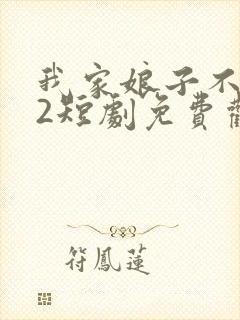 我家娘子不
2短劇免費
符鳳蓮